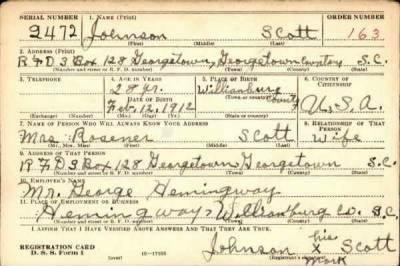 SERIAL NUMBER 1. NAME (Print) ORDER NUMBER
2472 Johnson Scott 163
(First) (Middle) (Last)
2. ADDRESS (Print)
R F D 3 Box 128 Georgetown, Georgetown County S.C.
(Number and street or R. F. D. number) (Town) (County) (State)
3. TELEPHONE 4. AGE IN YEARS 5. PLACE OF BIRTH 6. COUNTRY OF CITIZENSHIP
28 yr. Willianburg
DATE OF BIRTH (Town or county)
Feb. 12, 1912 County U.S.A.
(Exchange) (Number) (Mo.) (Day) (Yr.) (State or country)
7. NAME OF PERSON WHO WILL ALWAYS KNOW YOUR ADDRESS 8. RELATIONSHIP OF THAT PERSON
Mrs Rosener Scott Wife
(Mr., Mrs., Miss) (First) (Middle) (Last)
9. ADDRESS OF THAT PERSON
R F D 3 Box 128 Georgetown Georgetown S.C.
(Number and street or R. F. D. number) (Town) (County) (State)
10. EMPLOYER'S NAME
Mr. George Hemingway
11. PLACE OF EMPLOYMENT OR BUSINESS
Hemingway, Willianburg Co. S.C.
(Number and street or R. F. D. number) (Town) (County) (State)
I AFFIRM THAT I HAVE VERIFIED ABOVE ANSWERS AND THAT THEY ARE TRUE.
his
Johnson X Scott
mark
REGISTRATION CARD
D. S. S. Form 1 (over)